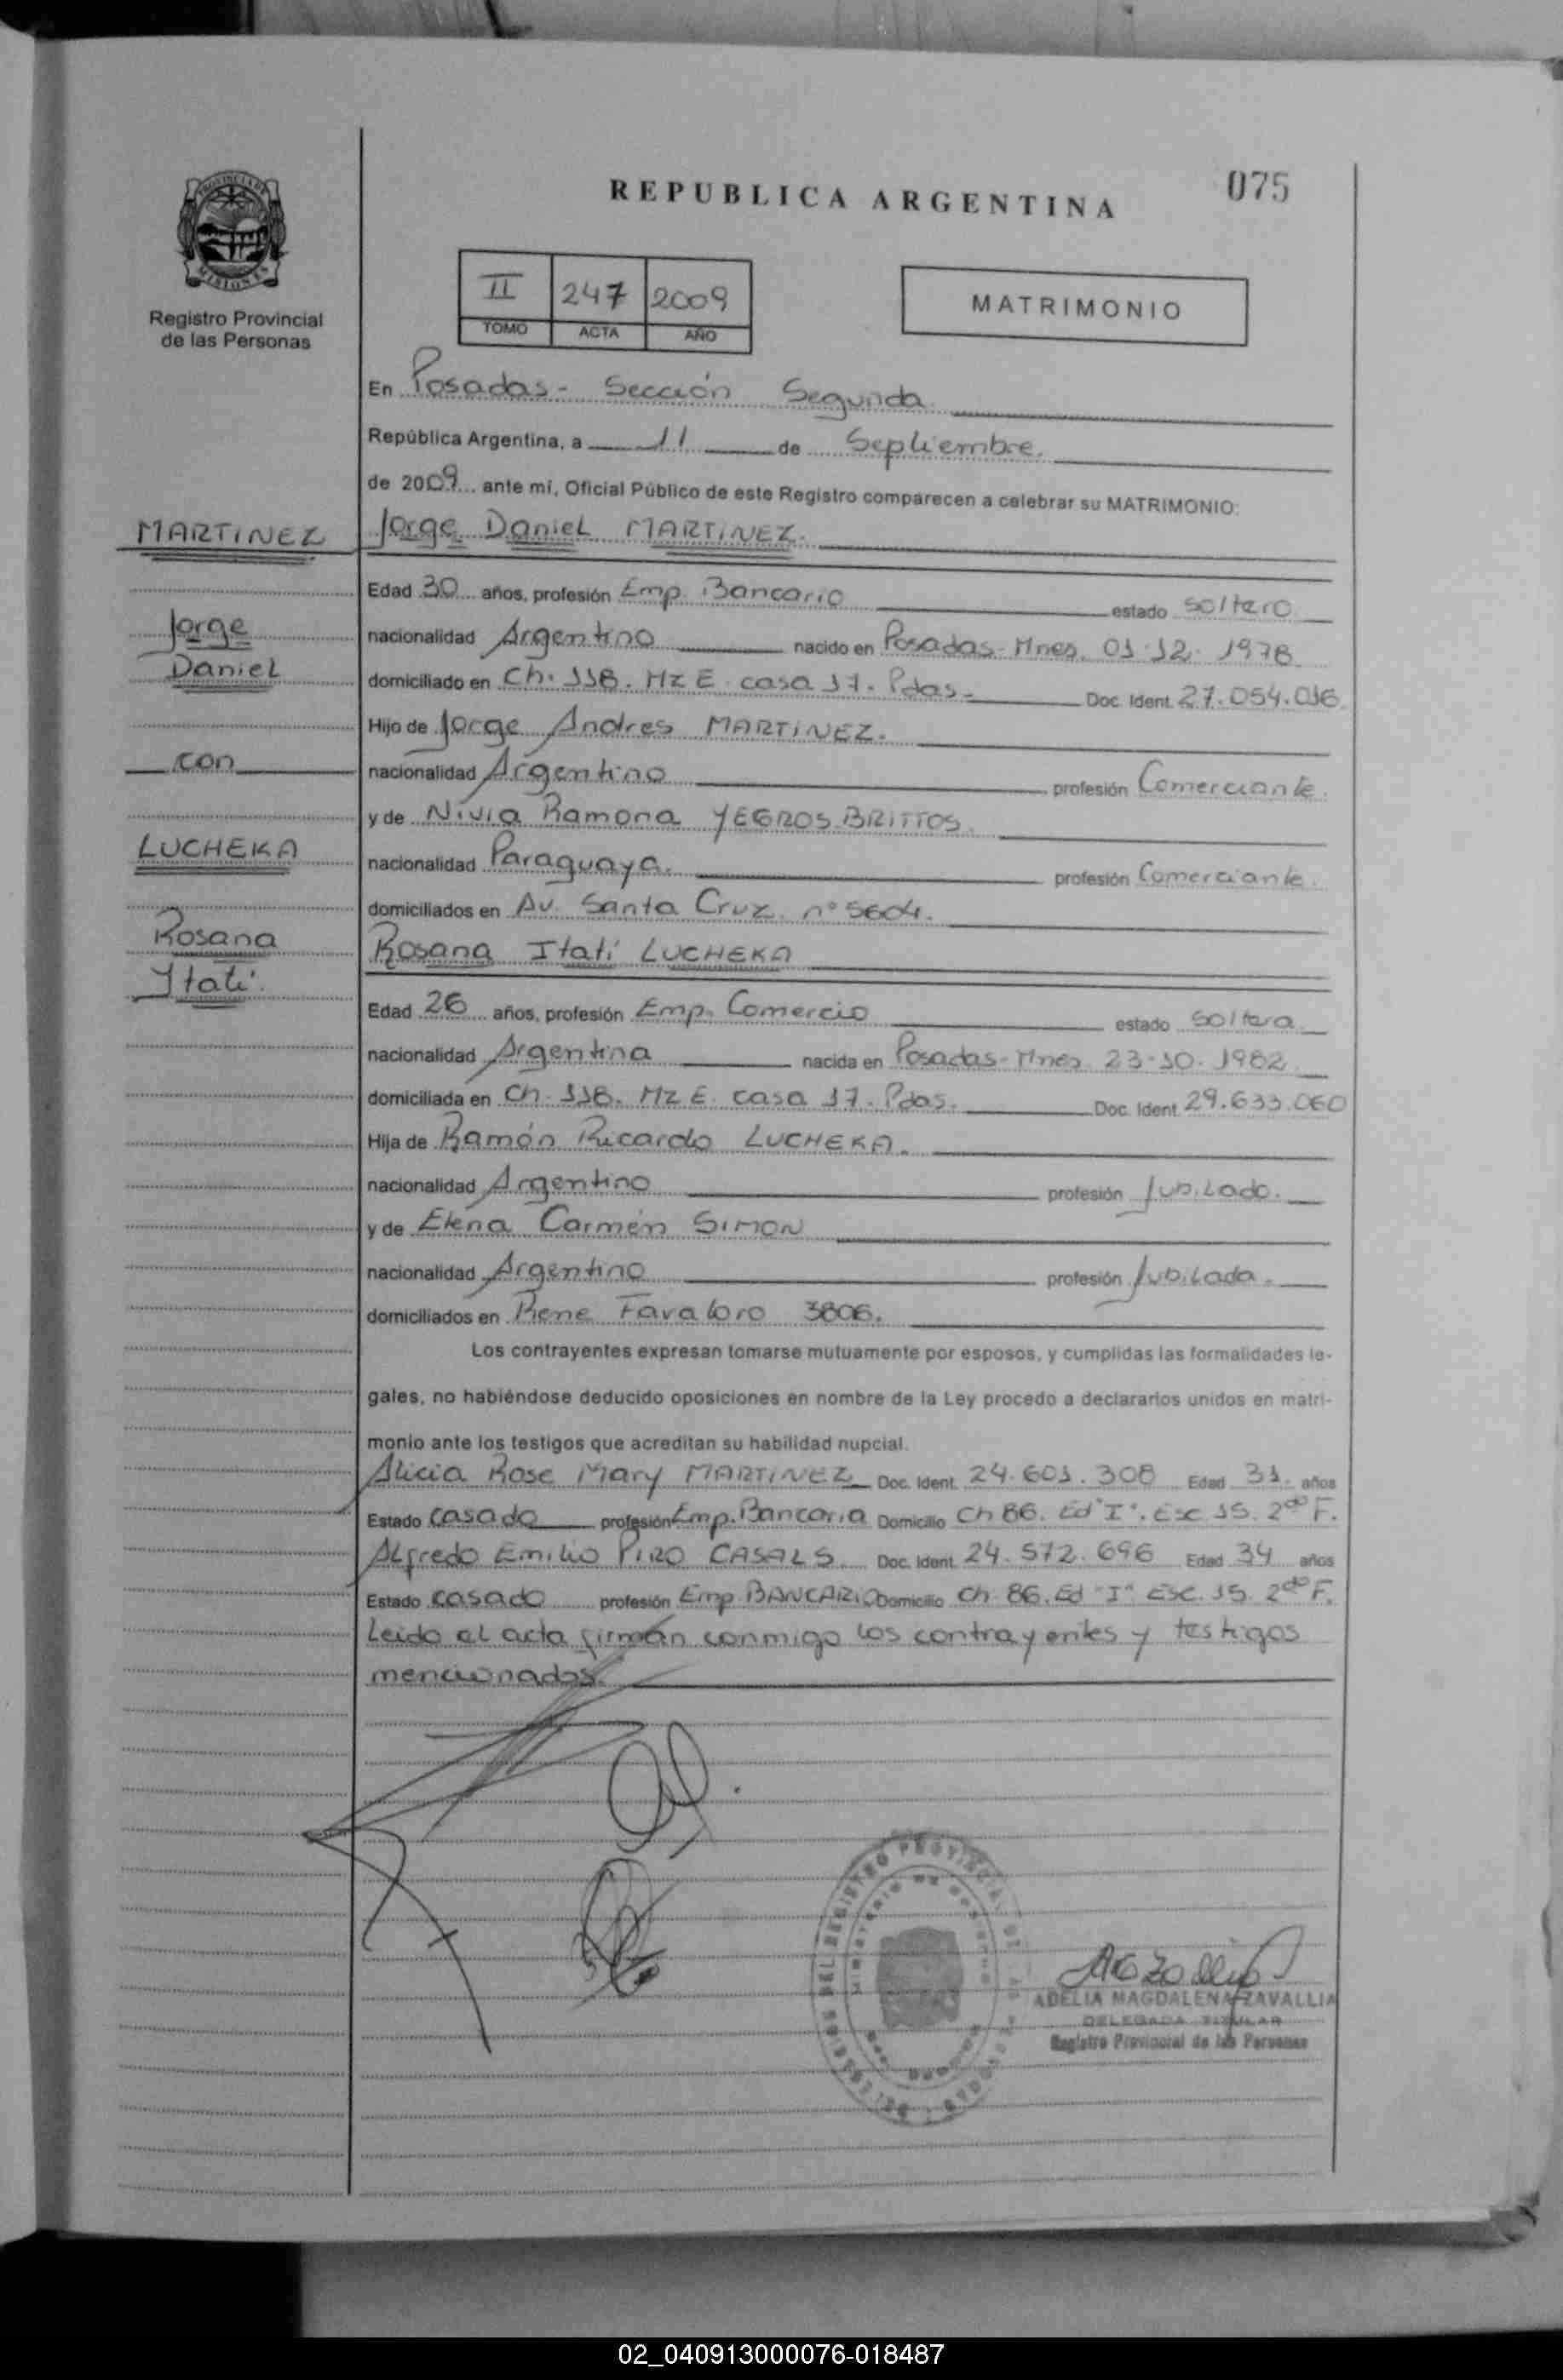 PROVINCIA DE
MISIONES
Registro Provincial
de las Personas
REPUBLICA ARGENTINA
075
II 247 2009
TOMO ACTA AÑO
MATRIMONIO
En Posadas - Sección Segunda
República Argentina, a 11 de Septiembre.
de 2009 ante mí, Oficial Público de este Registro comparecen a celebrar su MATRIMONIO:
MARTINEZ
Jorge Daniel MARTINEZ.
Edad 30 años, profesión Emp. Bancario estado soltero
Jorge
nacionalidad Argentino nacido en Posadas - Mnes. 01.12.1978
Daniel
domiciliado en Ch. 118. Mz E. casa 17. Pdas. Doc. Ident. 27.054.016
Hijo de Jorge Andres MARTINEZ.
con
nacionalidad Argentino profesión Comerciante.
y de Nivia Ramona YEGROS BRITTOS.
LUCHEKA
nacionalidad Paraguaya. profesión Comerciante.
domiciliados en Av. Santa Cruz. nº 5604.
Rosana
Rosana Itatí LUCHEKA
Ytatí.
Edad 26 años, profesión Emp. Comercio estado soltera
nacionalidad Argentina nacida en Posadas - Mnes. 23-10-1982
domiciliada en Ch. 118. Mz E. casa 17. Pdas. Doc. Ident. 29.633.060
Hija de Ramón Ricardo LUCHEKA.
nacionalidad Argentino profesión Jubilado.
y de Elena Carmen SIMON
nacionalidad Argentino profesión Jubilada.
domiciliados en Rene Favaloro 3806.
Los contrayentes expresan tomarse mutuamente por esposos, y cumplidas las formalidades le-
gales, no habiéndose deducido oposiciones en nombre de la Ley procedo a declararlos unidos en matri-
monio ante los testigos que acreditan su habilidad nupcial.
Alicia Rose Mary MARTINEZ Doc. Ident. 24.601.308 Edad 31. años
Estado casado profesión Emp. Bancaria Domicilio Ch 86. Ed "I". Esc 15. 2do F.
Alfredo Emilio PIRO CASALS. Doc. Ident. 24.572.696 Edad 34 años
Estado casado profesión Emp. BANCARIO Domicilio Ch 86. Ed "I" Esc. 15. 2do F.
Leido el acta firman conmigo los contrayentes y testigos
mencionados.
ADELIA MAGDALENA ZAVALLIA
DELEGADA TITULAR
Registro Provincial de las Personas
02_040913000076-018487